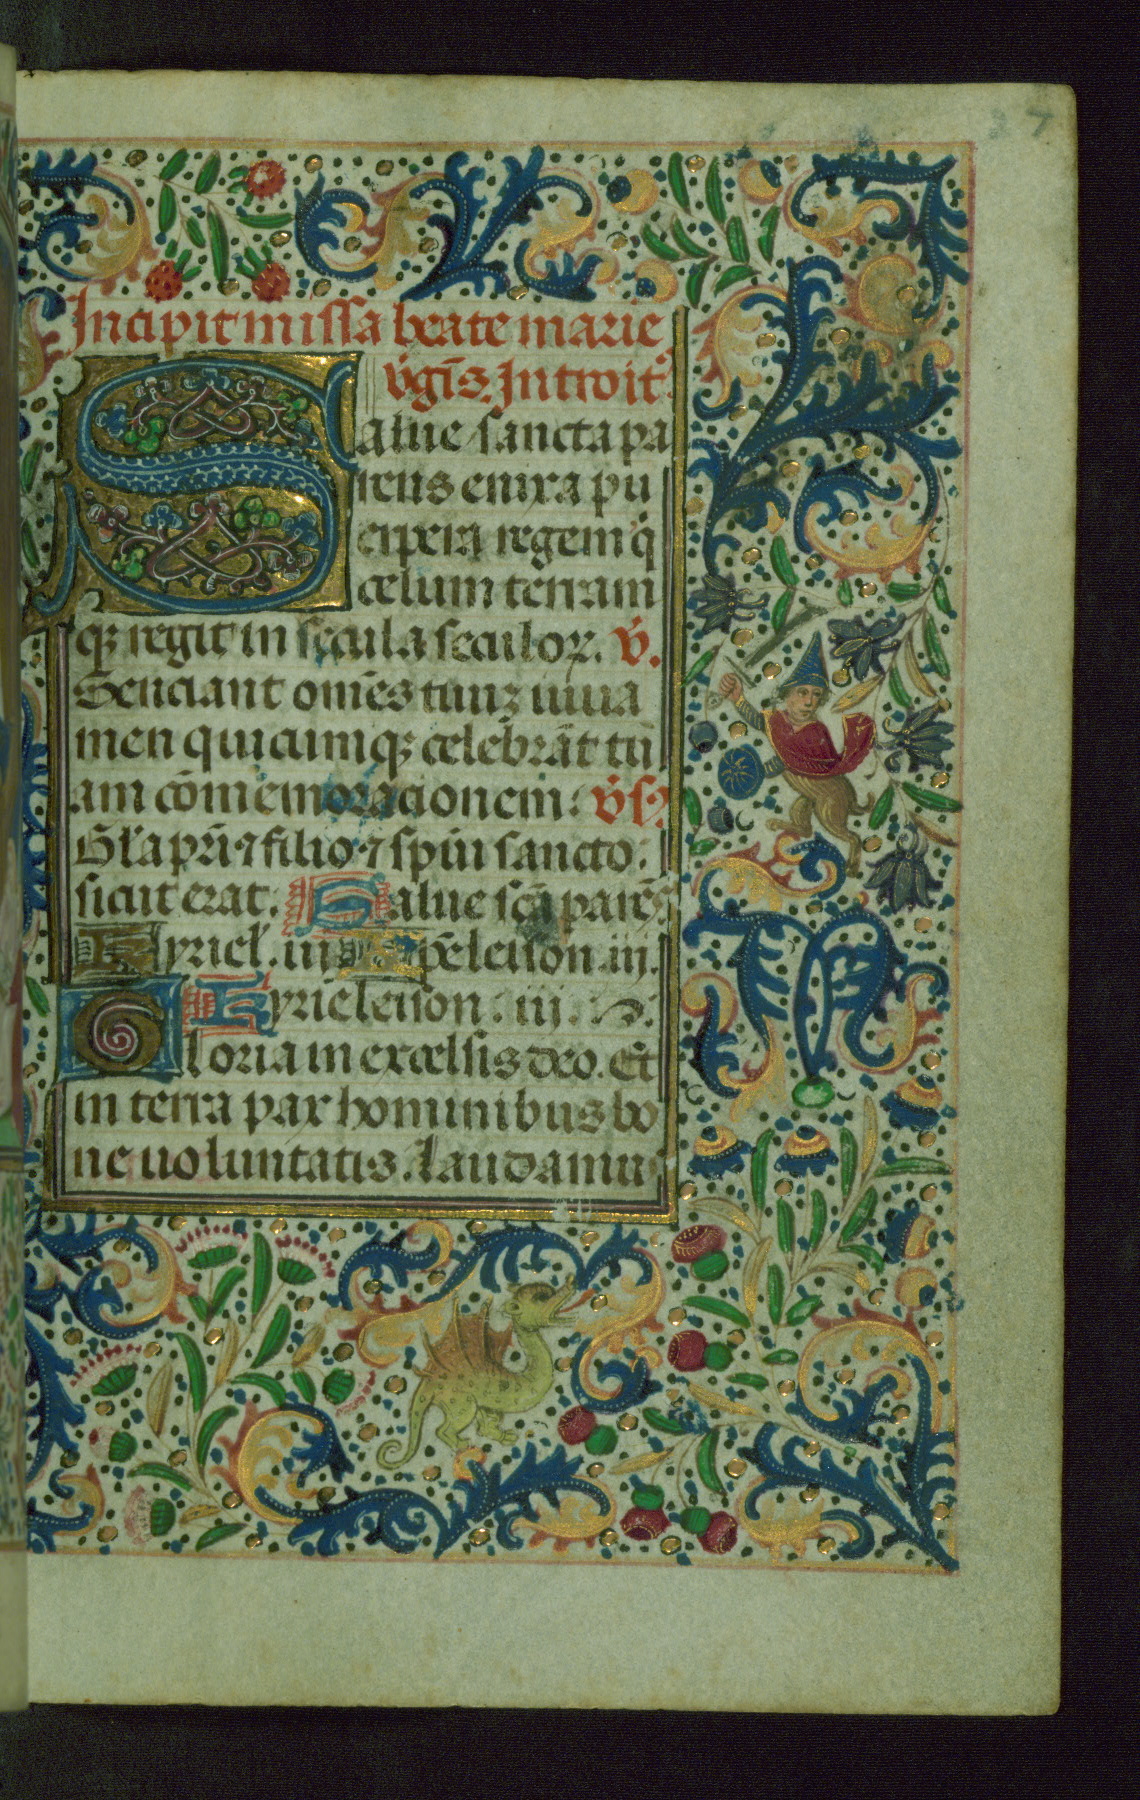 27
Incipit missa beate marie
v̄gīs. Introit᷒.
Salue sancta pa
rens enixa pu
erpera regem q̄
celum terram
qꝫ regit in secula seculoꝝ. v̄.
Senciant om̄es tuuꝫ iuua
men quicumqꝫ celebrāt tu
am cōmemoracionem: v̄s.
Gl'a pr̄i ⁊ filio ⁊ spū̄i sancto.
sicut erat. Salue sc̄a parēs
Kyriel'. iii xp̄eleison .iij.
Kyrieleison. iij.
Gloria in excelsis deo. Et
in terra pax hominibus bo
ne uoluntatis. Laudamu